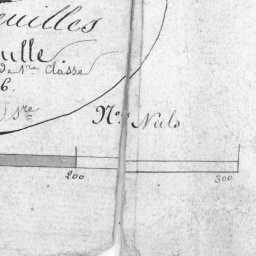 euilles
ulle
de 1re classe
6.
Sre
Nos Nuls
200 300